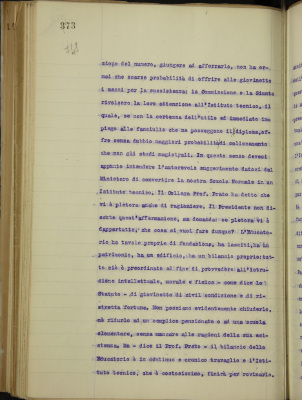 373
siope del numero, giungere ad afferrarle, non ha or-
mai che scarse probabilità di offrire alle giovinette
i mezzi per la sussistenza; la Commissione e la Giunta
rivolsero la loro attenzione all'Istituto tecnico, il
quale, se non la certezza dell'utile ed immediato im-
piego alle fanciulle che ne posseggono il diploma, of-
fre senza dubbio maggiori probabilità di collocamento
che non gli studi magistrali. In questo senso devesi
appunto intendere l'autorevole suggerimento datoci dal
Ministero di convertire la nostra Scuola Normale in un
Istituto tecnico. Il Collega Prof. Prato ha detto che
vi è pletora anche di ragioniere. Il Presidente non di-
scute quest'affermazione, ma domanda: se pletora vi è
dappertutto, che cosa si vuol fare dunque? L'Educato-
rio ha tavole proprie di fondazione, ha lasciti, ha un
patrimonio, ha un edificio, ha un bilancio proprio: tut-
to ciò è preordinato al fine di provvedere all'istru-
zione intellettuale, morale e fisica - come dice lo
Statuto - di giovinette di civil condizione e di ri-
stretta fortuna. Non possiamo evidentemente chiuderlo,
nè ridurlo ad un semplice pensionato o ad una scuola
elementare, senza mancare alle ragioni della sua esi-
stenza. Ma - dice il Prof. Prato - il bilancio dello
Educatorio è in continuo e cronico travaglio e l'Isti-
tuto tecnico, che è costosissimo, finirà per rovinarlo.